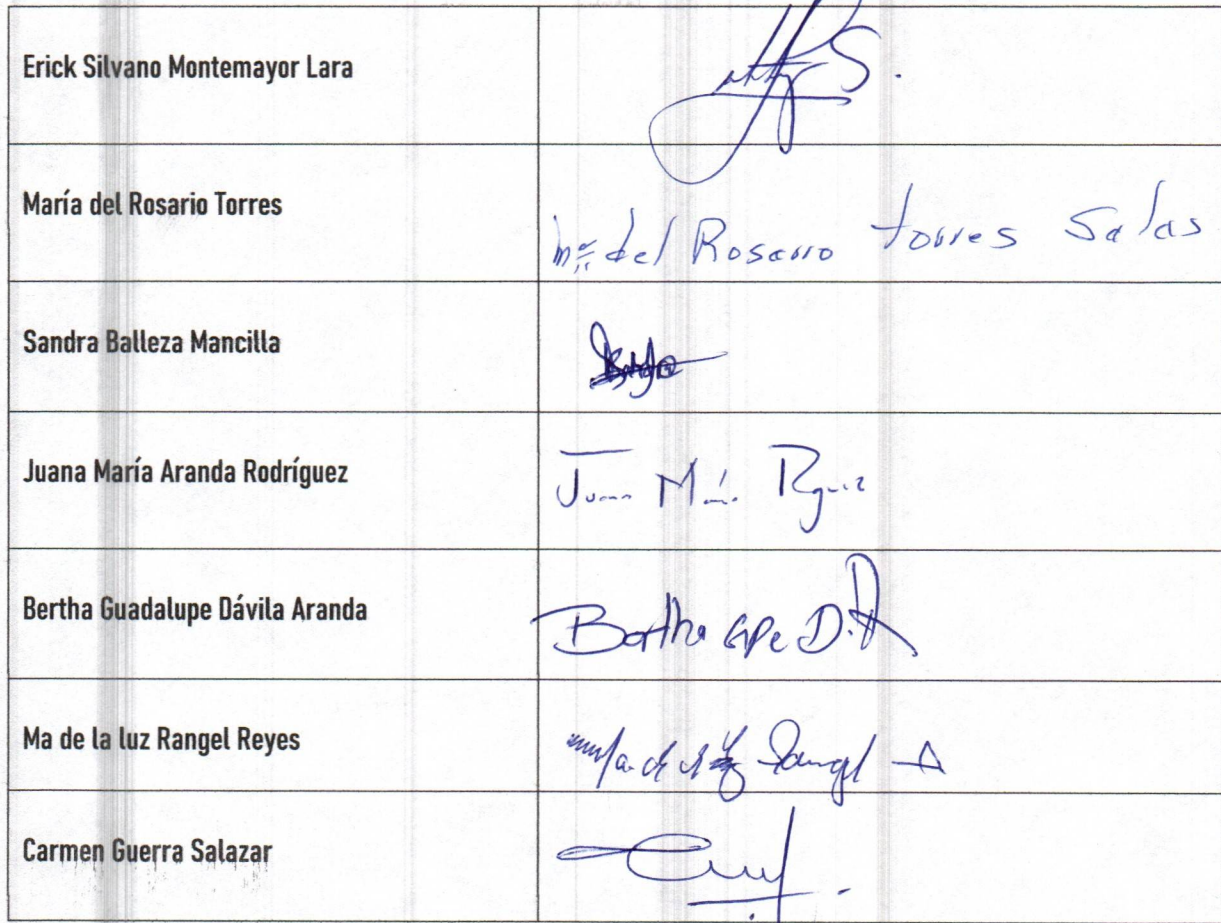 Erick Silvano Montemayor Lara
María del Rosario Torres
Ma del Rosario torres Salas
Sandra Balleza Mancilla
Juana María Aranda Rodríguez
Juana Ma.
Bertha Guadalupe Dávila Aranda
Bertha Gpe D.A
Ma de la luz Rangel Reyes
Rangel
Carmen Guerra Salazar